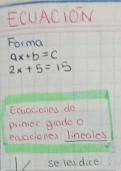 ECUACIÓN
Forma
ax+b=c
2x+5=15
Ecuaciones de
primer grado o
ecuaciones lineales
se les dice...